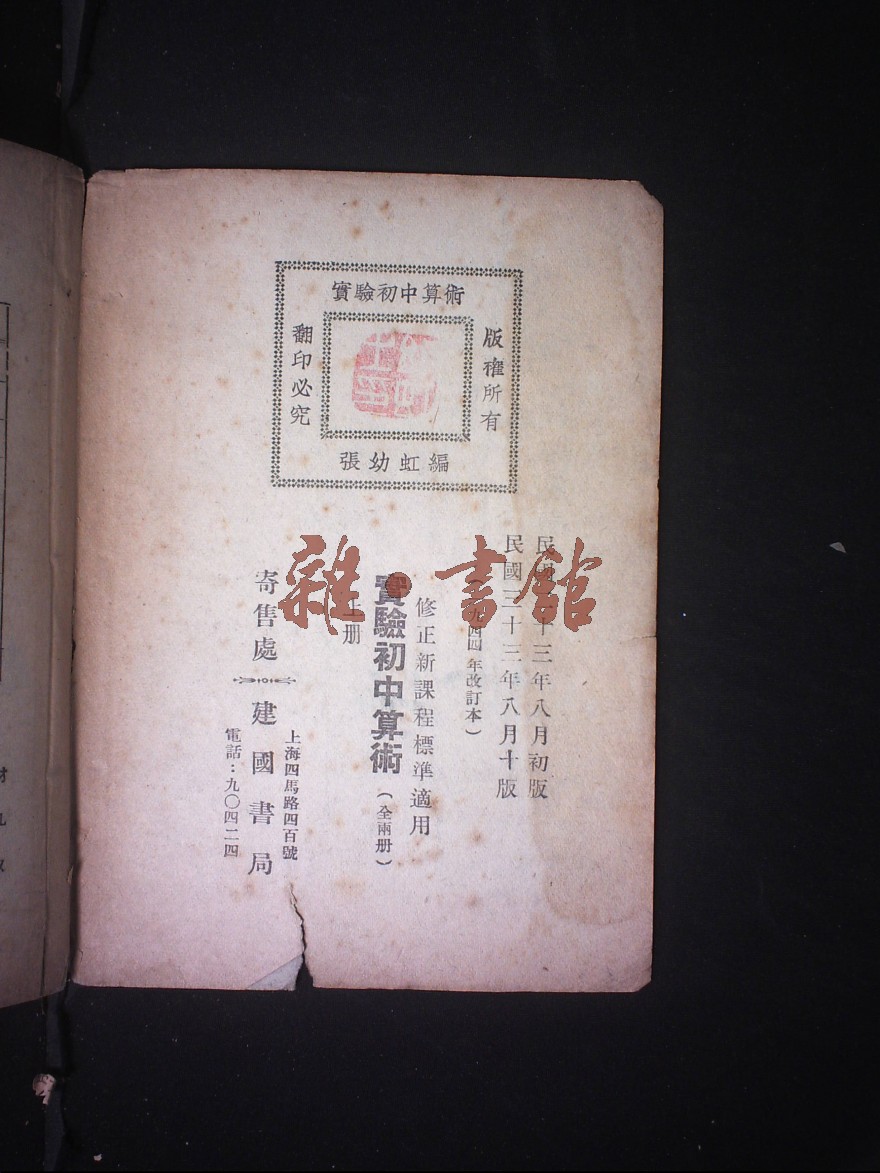 實驗初中算術
版權所有
翻印必究
張幼虹編
民國 十三年八月初版
民國三十三年八月十版
四四年改訂本）
修正新課程標準適用
實驗初中算術（全兩册）
上册
寄售處 建國書局
上海四馬路四百號
電話：九〇四二四
雜·書館